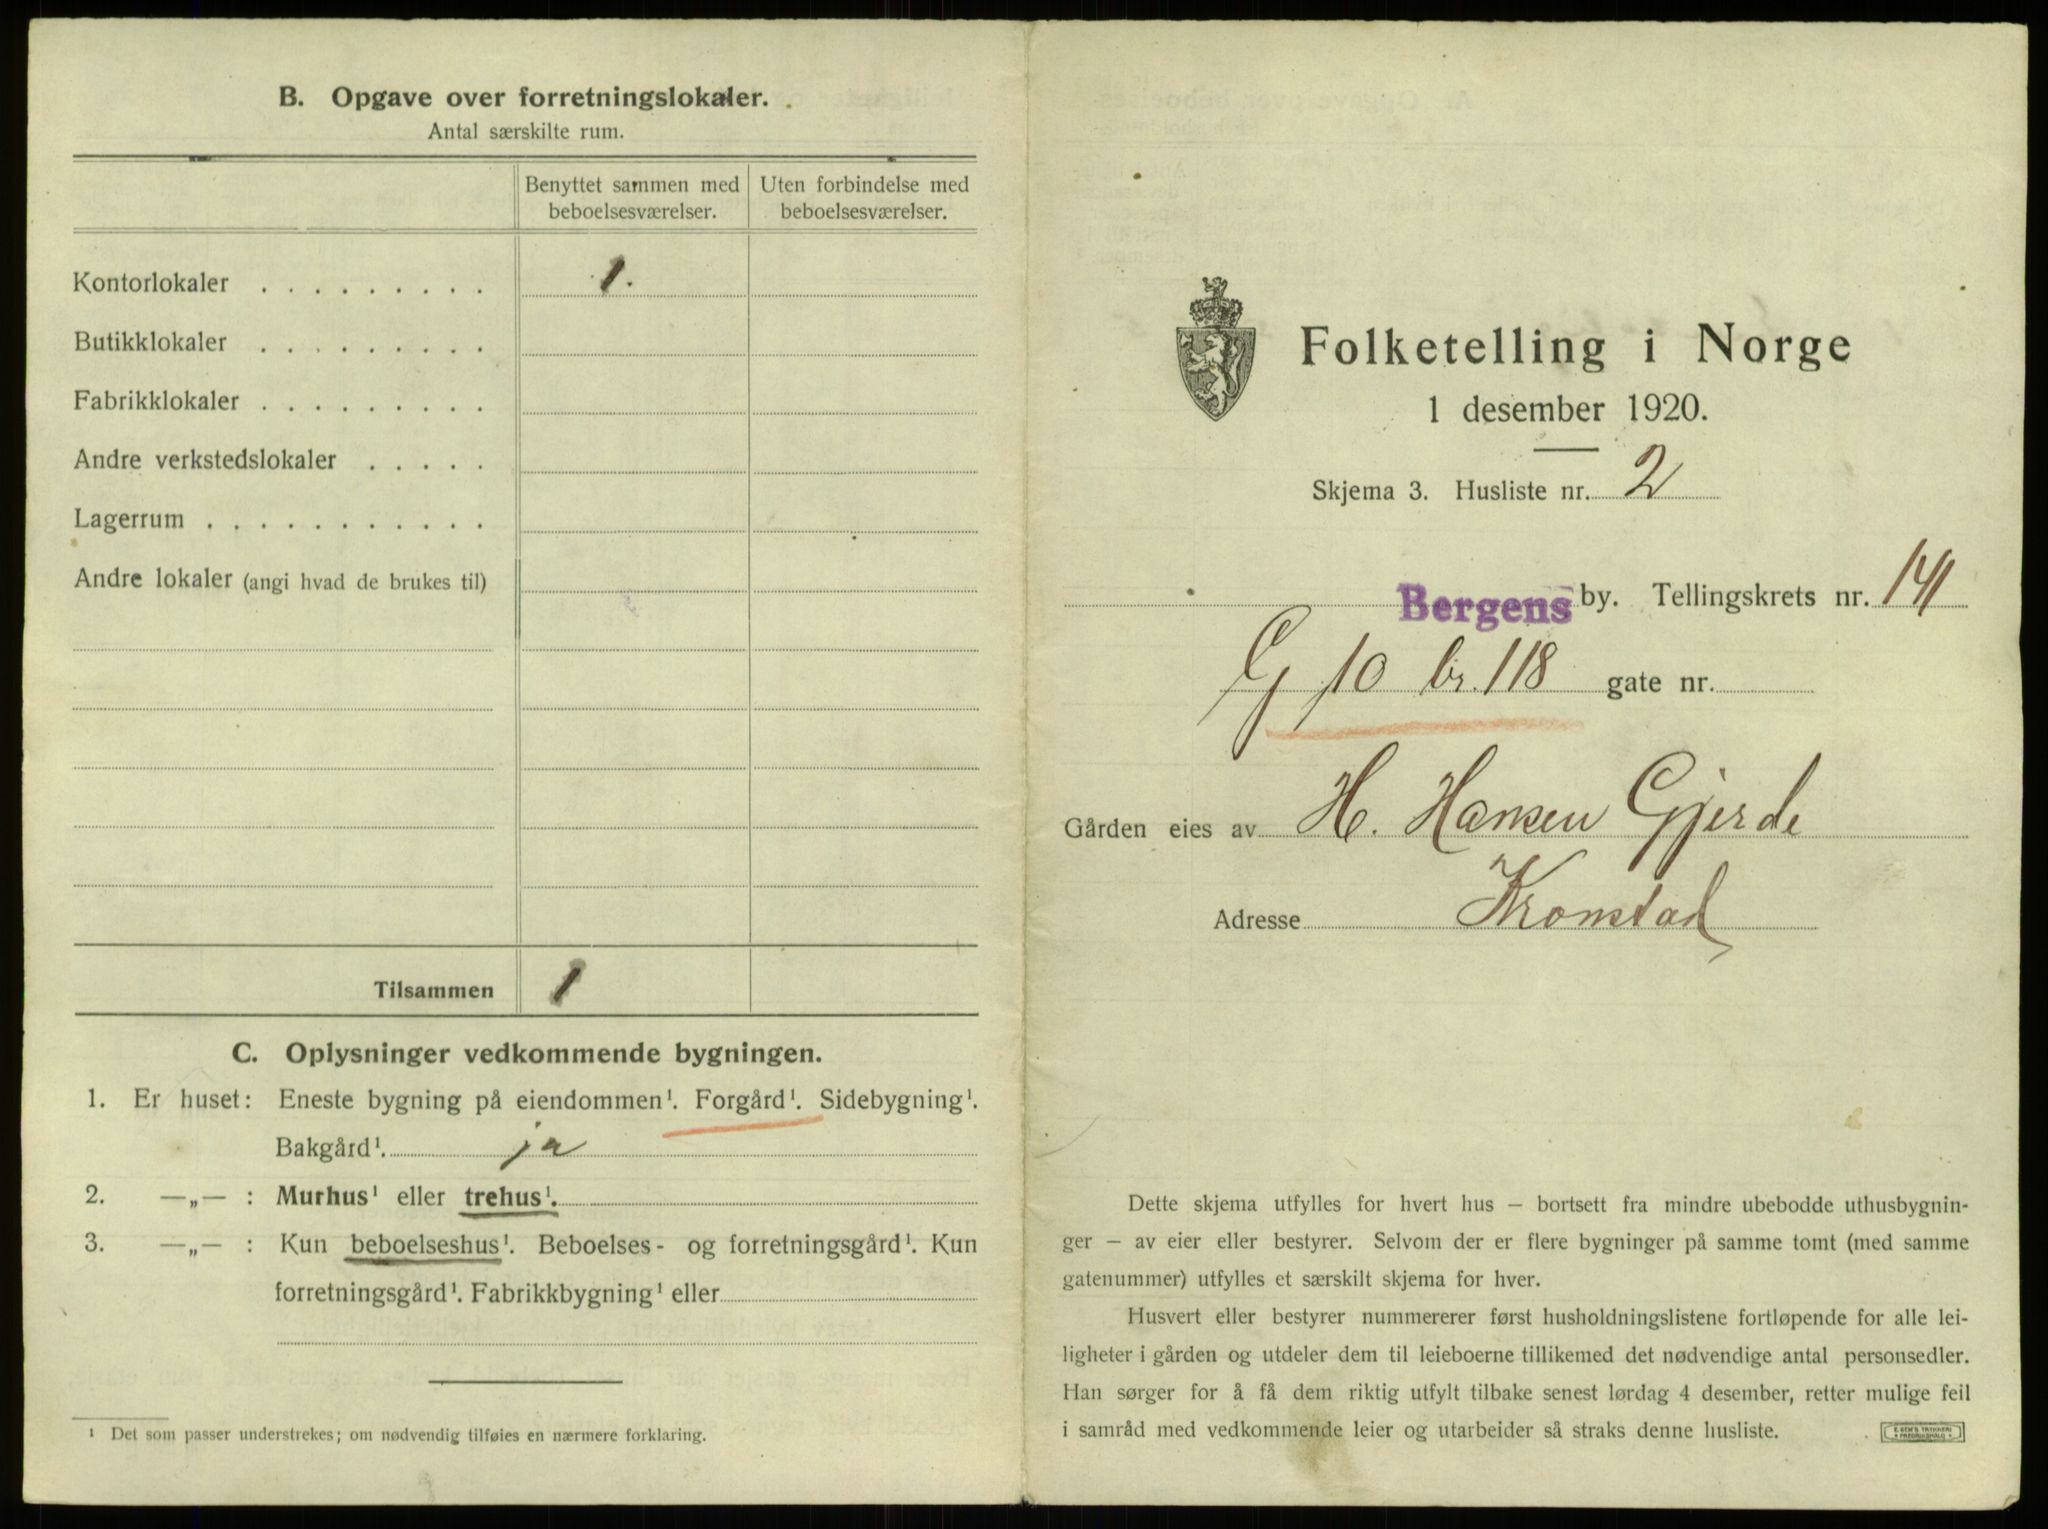 B. Opgave over forretningslokaler.
Antal særskilte rum.
Benyttet sammen med beboelsesværelser.
Uten forbindelse med beboelsesværelser.
Kontorlokaler . . . . . . . . . 1.
Butikklokaler . . . . . . . . .
Fabrikklokaler . . . . . . . . .
Andre verkstedslokaler . . . . .
Lagerrum . . . . . . . . . . .
Andre lokaler (angi hvad de brukes til)
Tilsammen 1
C. Oplysninger vedkommende bygningen.
1. Er huset: Eneste bygning på eiendommen¹. Forgård¹. Sidebygning¹.
Bakgård¹. ja
2. —„— : Murhus¹ eller trehus¹.
3. —„— : Kun beboelseshus¹. Beboelses- og forretningsgård¹. Kun
forretningsgård¹. Fabrikkbygning¹ eller
¹ Det som passer understrekes; om nødvendig tilføies en nærmere forklaring.
Folketelling i Norge
1 desember 1920.
Skjema 3. Husliste nr. 2
Bergens by. Tellingskrets nr. 141
G 10 br. 118 gate nr.
Gården eies av H. Hansen Gjerde
Adresse Kronstad
Dette skjema utfylles for hvert hus – bortsett fra mindre ubebodde uthusbygnin-
ger – av eier eller bestyrer. Selvom der er flere bygninger på samme tomt (med samme
gatenummer) utfylles et særskilt skjema for hver.
Husvert eller bestyrer nummererer først husholdningslistene fortløpende for alle lei-
ligheter i gården og utdeler dem til leieboerne tillikemed det nødvendige antal personsedler.
Han sørger for å få dem riktig utfylt tilbake senest lørdag 4 desember, retter mulige feil
i samråd med vedkommende leier og utarbeider så straks denne husliste.
E. SEM'S TRYKKERI
• FREDRIKSHALD •